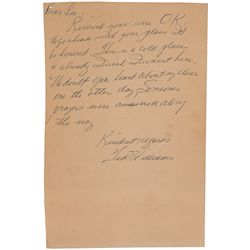 Dear Lee,
Received your wire O.K.
to go ahead with your plans I'd
be honored. This is a cold place
a already Divid Divament here.
No doubt you heard about my close
one the other day. Someones
prayers were answered along
the way
Kindest regards
Ted Williams